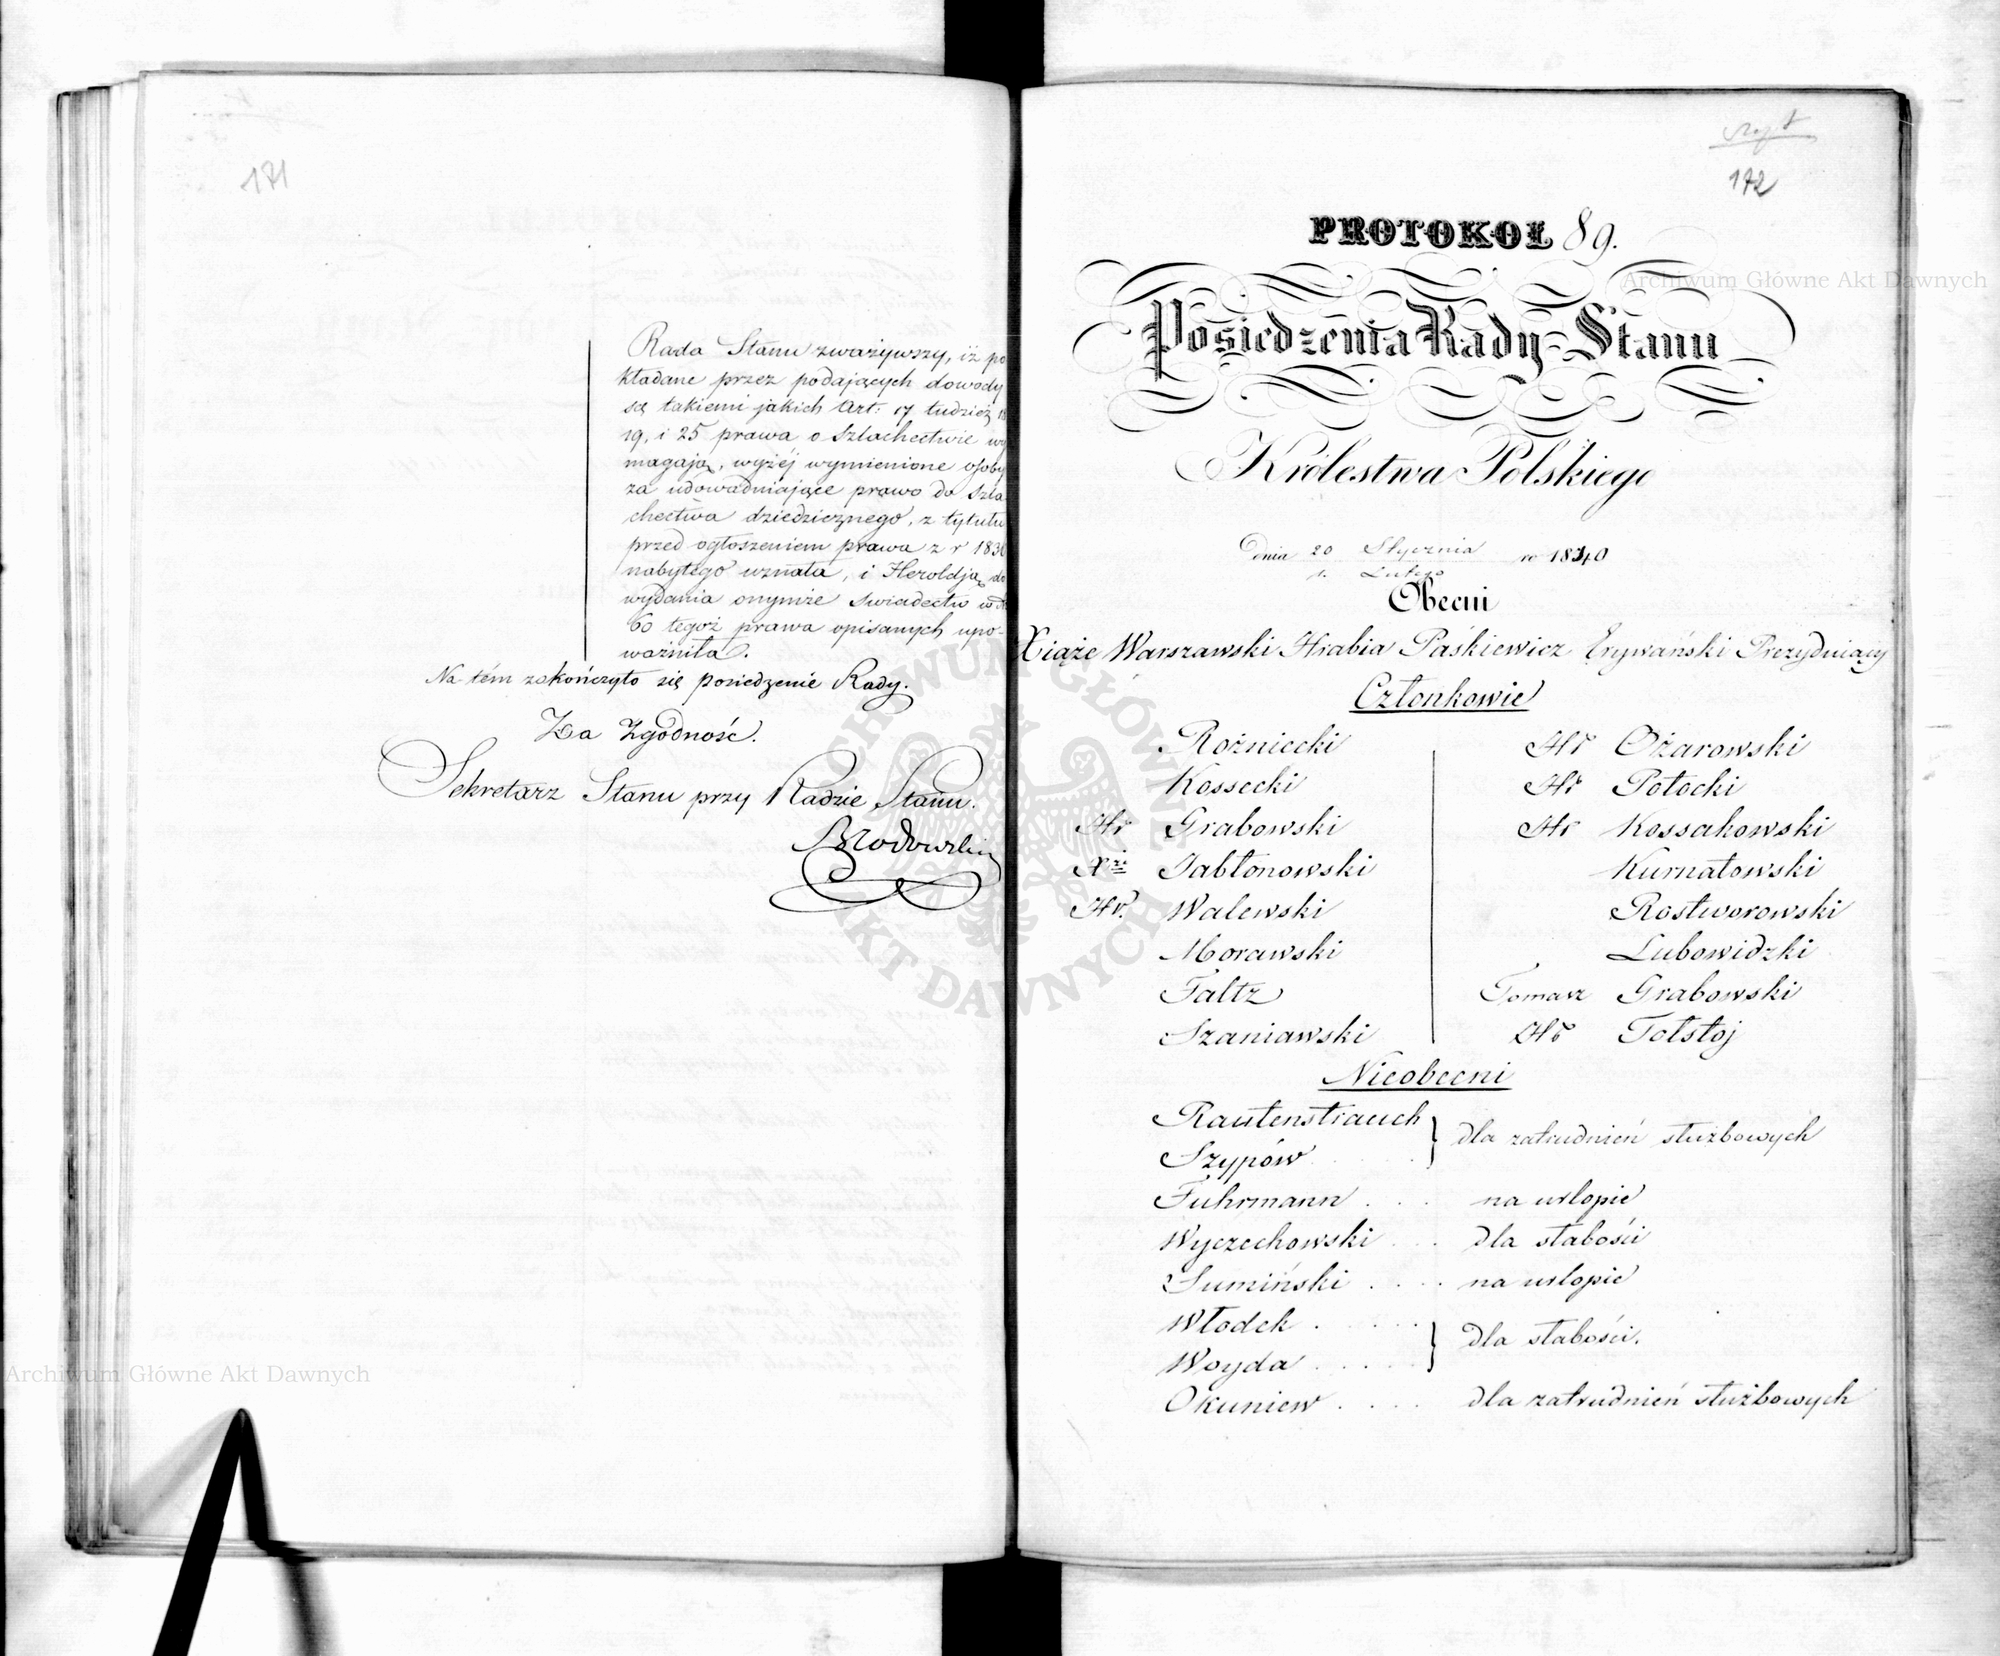 171
Rada Stanu zważywszy, iż po
kładane przez podających dowody
są takiemi jakich Art: 17 tudzież 18
19, i 25 prawa o Szlachectwie wy
magają, wyżej wymienione osoby
za udowadniające prawo do szla
chectwa dziedzicznego, z tytułu
przed ogłoszeniem prawa z r 1836
nabytego uznała, i Heroldją do
wydania onymże świadectw w
60 tegoż prawa opisanych upo-
ważniła.
Na tém zakończyło się posiedzenie Rady.
Za Zgodność.
Sekretarz Stanu przy Radzie Stanu.
Brodowski
172
PROTOKOŁ 89.
Posiedzenia Rady Stanu
Królestwa Polskiego
Dnia 20 Stycznia ro 1840
1. Lutego
Obecni
Xiąże Warszawski Hrabia Paśkiewicz Erywański Prezydujący
Członkowie
Rożniecki
Kossecki
Hr Grabowski
Xże Jabłonowski
Hr. Walewski
Morawski
Faltz
Szaniawski
Hr Ożarowski
Hr Potocki
Hr Kossakowski
Kurnatowski
Rostworowski
Lubowidzki
Tomasz Grabowski
Hr Tołstoj
Nieobecni
Rautenstrauch } dla zatrudnień służbowych
Szypów
Fuhrmann . . . na urlopie
Wyczechowski . . . dla słabości
Sumiński . . . . na urlopie
Włodek . . . . } dla słabości.
Woyda . . . . .
Okuniew . . . . dla zatrudnień służbowych
Archiwum Główne Akt Dawnych
Archiwum Główne Akt Dawnych
ARCHIWUM GŁÓWNE AKT DAWNYCH